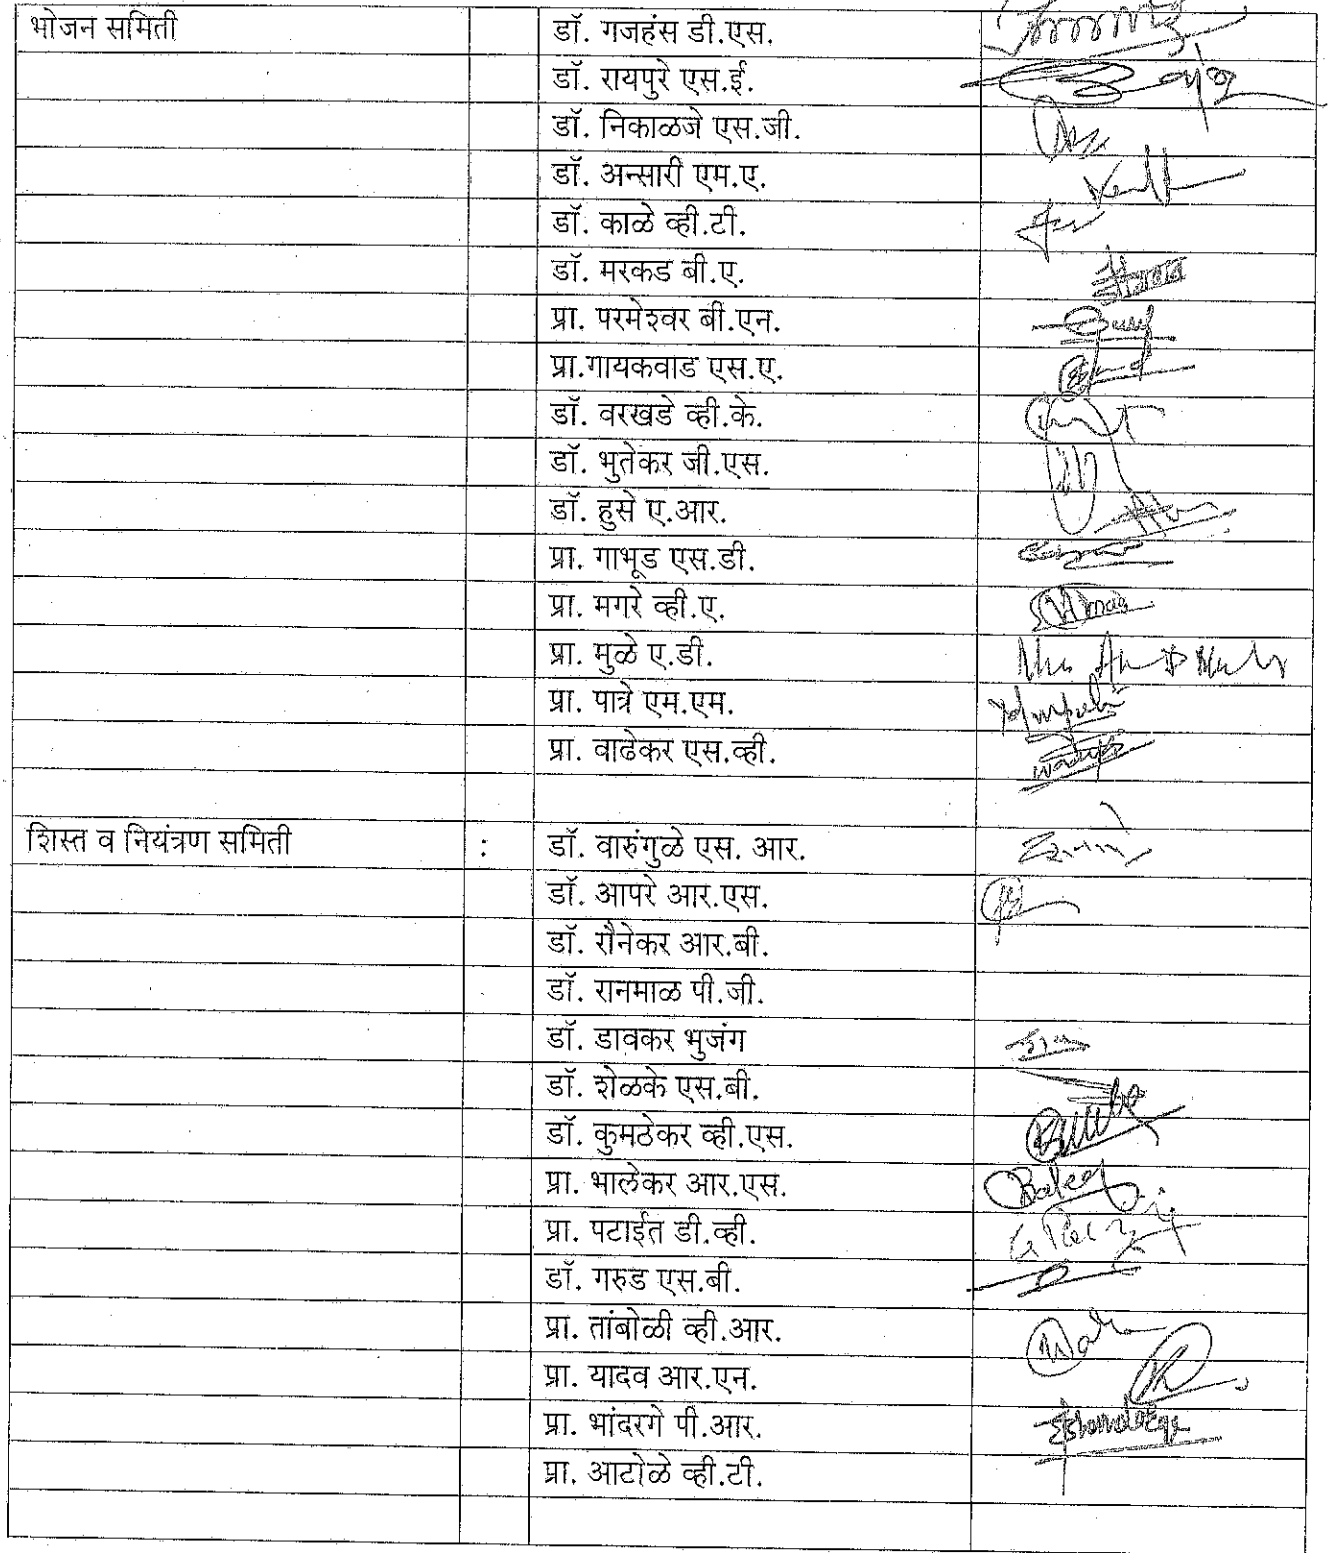 भोजन समिती डॉ. गजहंस डी.एस.
डॉ. रायपुरे एस.ई.
डॉ. निकाळजे एस.जी.
डॉ. अन्सारी एम.ए.
डॉ. काळे व्ही.टी.
डॉ. मरकड बी.ए.
प्रा. परमेश्वर बी.एन.
प्रा.गायकवाड एस.ए.
डॉ. वरखडे व्ही.के.
डॉ. भुतेकर जी.एस.
डॉ. हुसे ए.आर.
प्रा. गाभूड एस.डी.
प्रा. मगरे व्ही.ए.
प्रा. मुळे ए.डी.
प्रा. पात्रे एम.एम.
प्रा. वाढेकर एस.व्ही.
शिस्त व नियंत्रण समिती : डॉ. वारुंगुळे एस. आर.
डॉ. आपरे आर.एस.
डॉ. रौनेकर आर.बी.
डॉ. रानमाळ पी.जी.
डॉ. डावकर भुजंग
डॉ. शेळके एस.बी.
डॉ. कुमठेकर व्ही.एस.
प्रा. भालेकर आर.एस.
प्रा. पटाईत डी.व्ही.
डॉ. गरुड एस.बी.
प्रा. तांबोळी व्ही.आर.
प्रा. यादव आर.एन.
प्रा. भांदरगे पी.आर.
प्रा. आटोळे व्ही.टी.